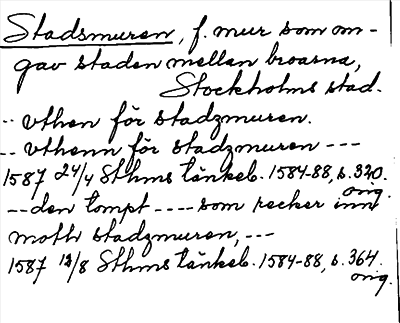 Stadsmuren, f. mur som om-
gav staden mellan broarna,
Stockholms stad.
-- vthen för stadzmuren.
-- vthenn för stadzmuren ---
1587 24/4 Sthms tänkeb. 1584-88, s. 320.
orig.
-- den tompt ---- som recker inn
moth stadzmuren, ---
1587 12/8 Sthms tänkeb. 1584-88, s. 364.
orig.